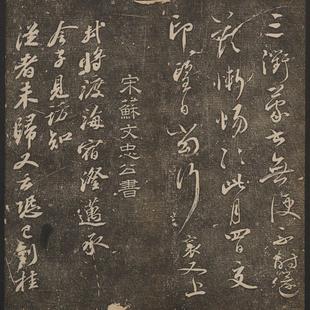 三衢蒙書無便不
慚惕此月四日交
印日當行 襄又上
宋蘇文忠公書
軾將渡海宿澄邁承
令子見訪知
從者未歸又云恐已到桂